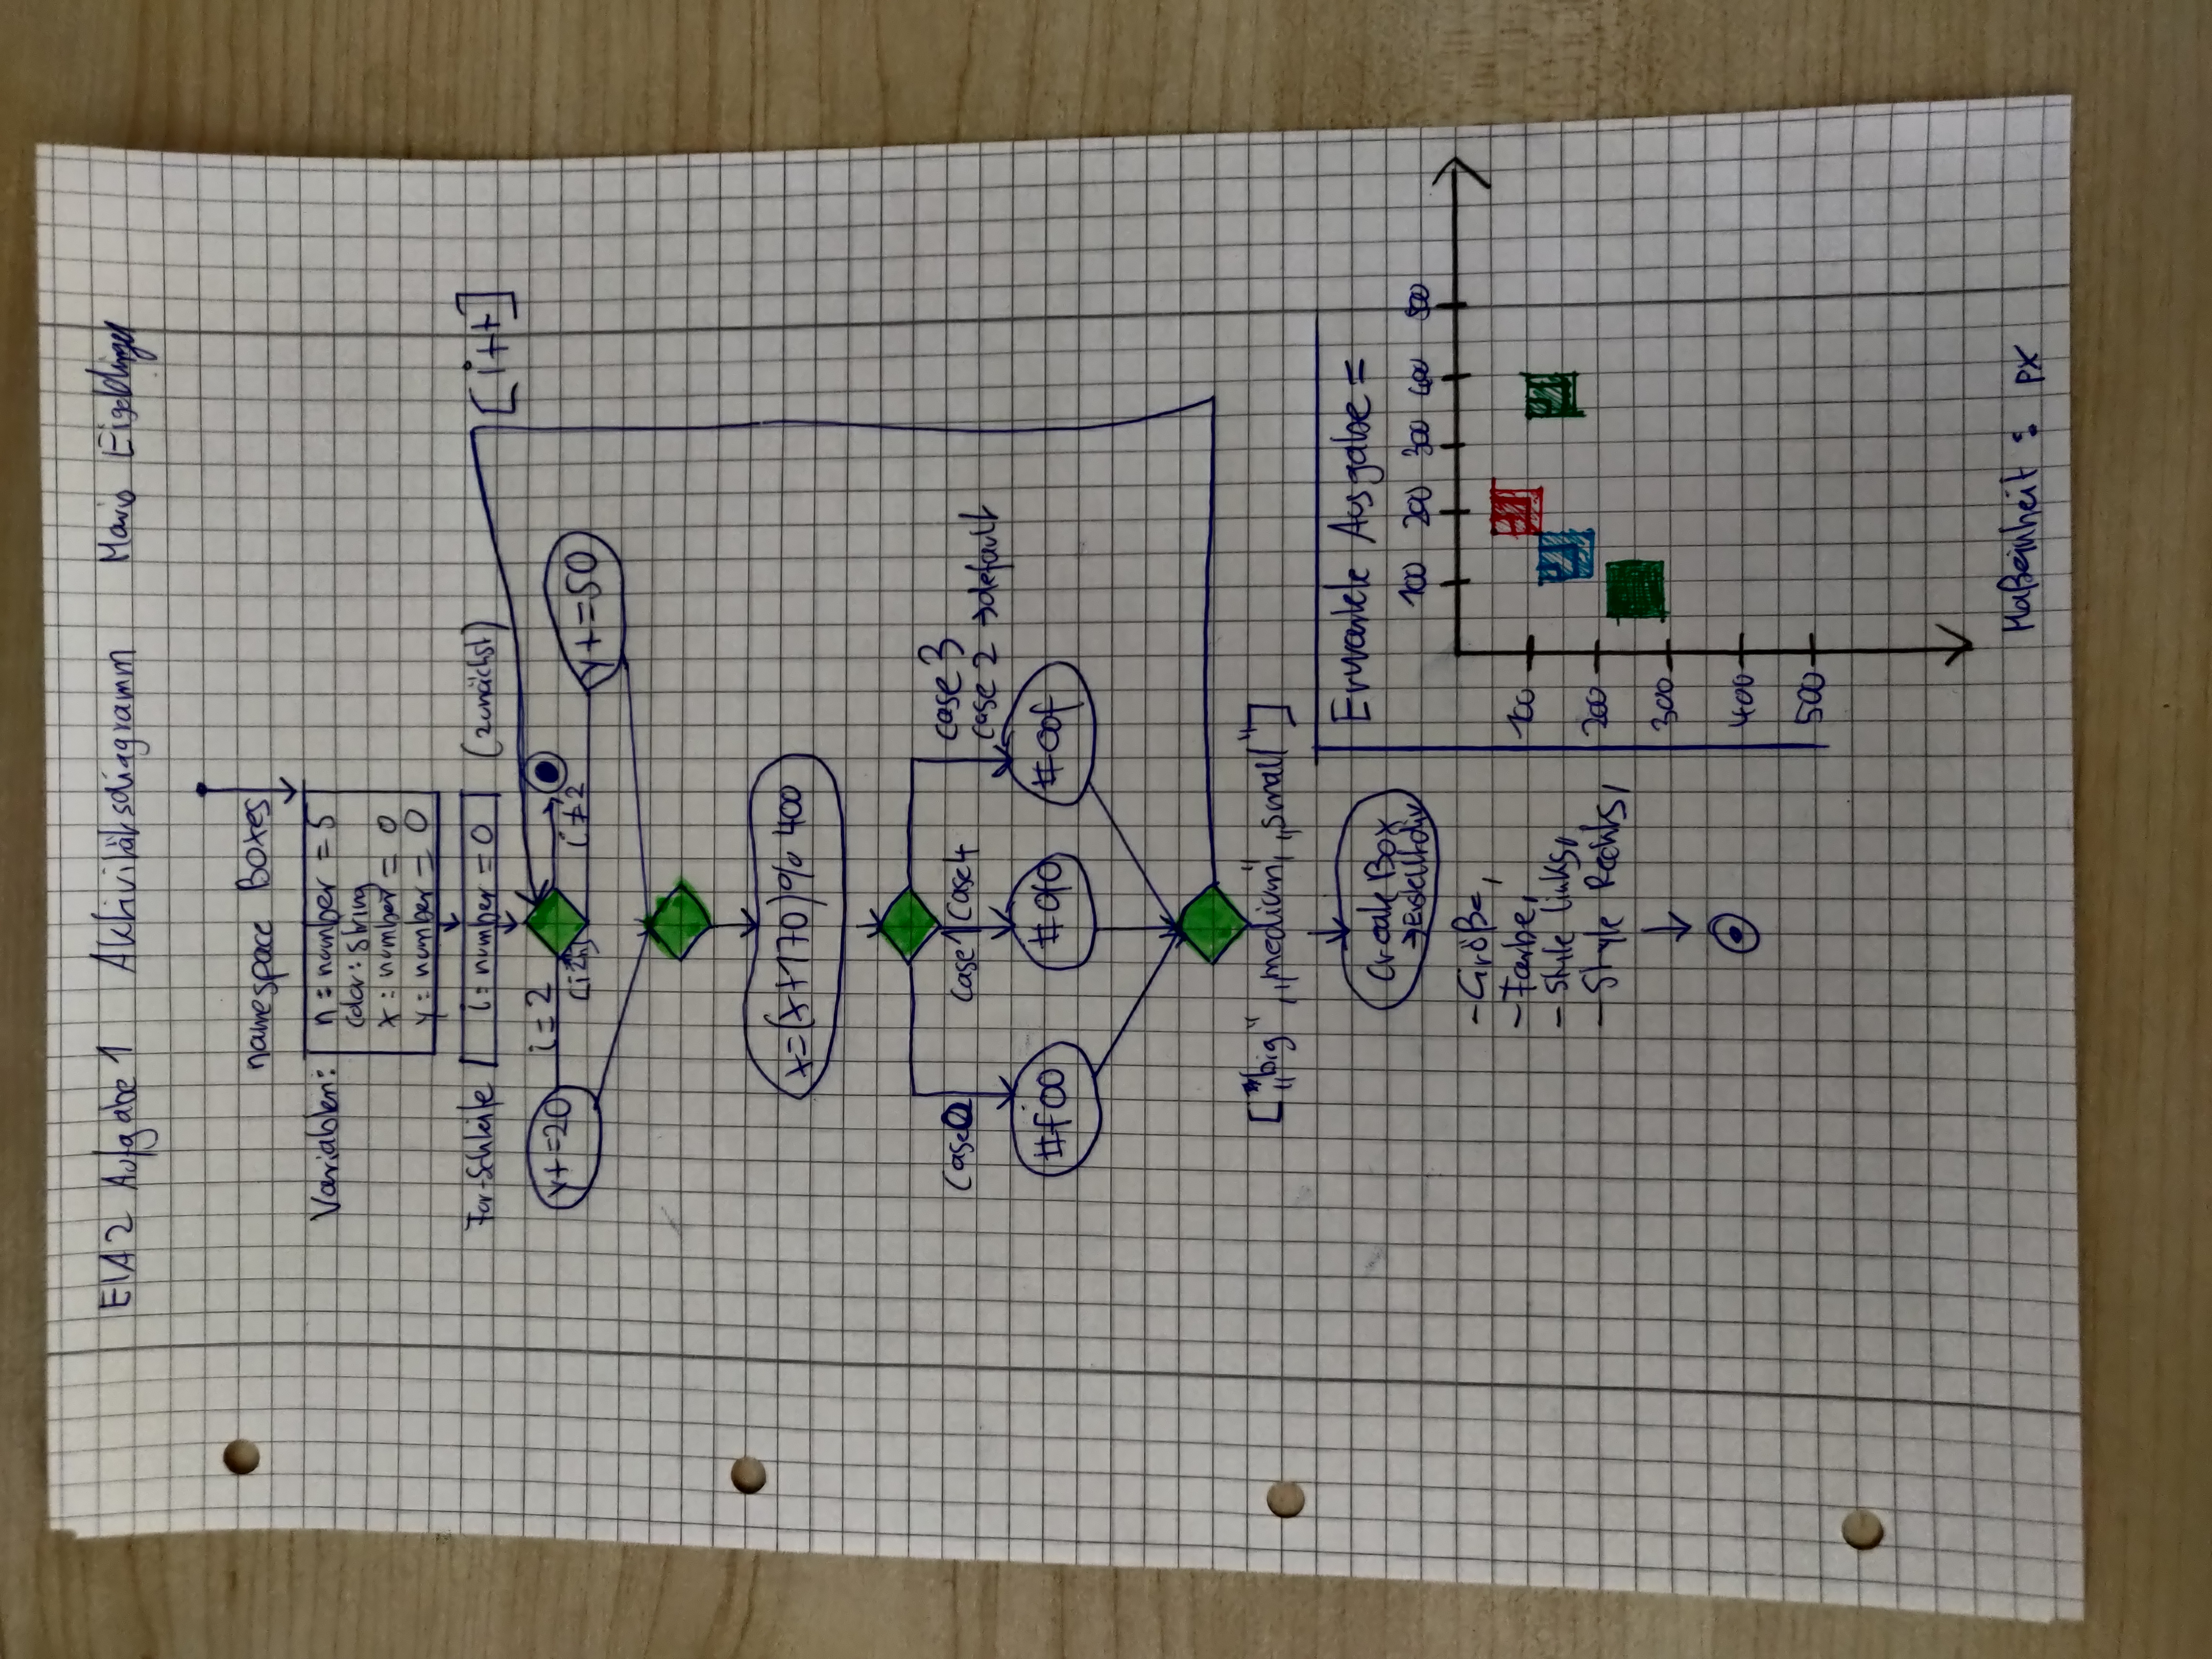 EIA2 Aufgabe 1 Aktivitätsdiagramm Mario Eigeldinger
namespace Boxes
Variablen: n: number = 5
color: string
x: number = 0
y: number = 0
For-Schleife i: number = 0 (zunächst) [i++]
y+=20 i=2 i≠2 y+=50
x=(x+170)%400
case 0 case 1 case 4 case 3
case 2 → default
#f00 #0f0 #00f
["big", "medium", "small"]
Create Box
→ Erstellt div
- Größe,
- Farbe,
- Style links,
- Style Rechts,
Erwartete Ausgabe =
100 200 300 400 500
100
200
300
400
500
Maßeinheit : px